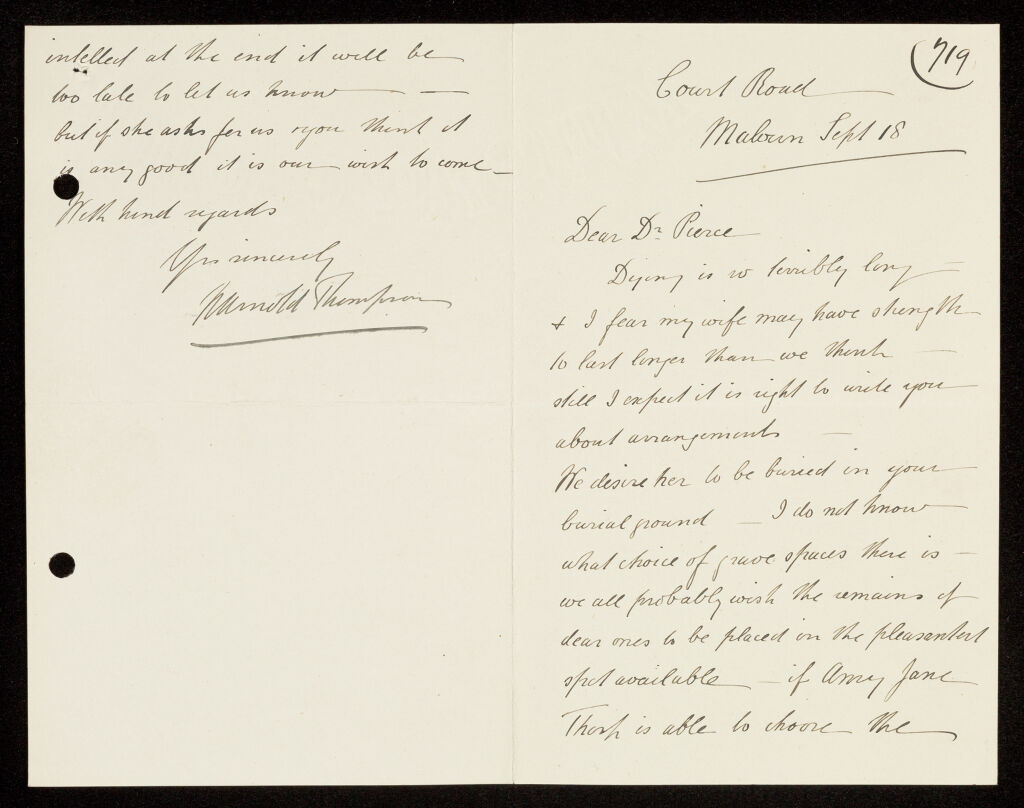 intellect at the end it will be
too late to let us know — —
but if she asks for us or you think it
is any good it is our wish to come —
With kind regards
Yrs sincerely
Arnold Thompson
719
Court Road
Malvern Sept 18
Dear Dr Pierce
Dying is so terribly long —
+ I fear my wife may have strength
to last longer than we think —
still I expect it is right to write you
about arrangements —
We desire her to be buried in your
burial ground — I do not know
what choice of grave spaces there is —
we all probably wish the remains of
dear ones to be placed in the pleasantest
spot available — if Amy Jane
Thorp is able to choose the